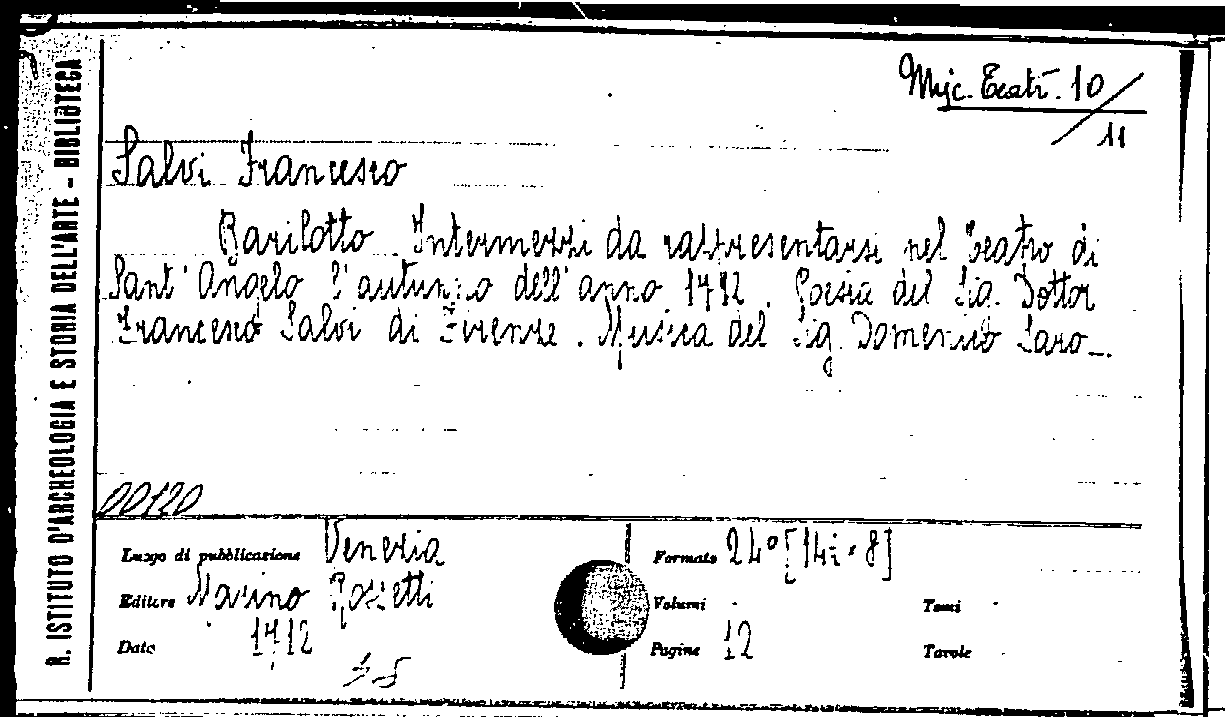 Misc. Teatr. 10/11
R. ISTITUTO D'ARCHEOLOGIA E STORIA DELL'ARTE - BIBLIOTECA
Salvi Francesco
Barilotto. Intermezzi da rappresentarsi nel Teatro di
Sant' Angelo l'autunno dell' anno 1712. Poesia del Sig. Dottor
Francesco Salvi di Firenze. Musica del Sig. Domenico Saro_.
00120
Luogo di pubblicazione Venezia
Editore Marino Rossetti
Data 1712
Formato 24° [14 × 8]
Volumi -
Tomi -
Pagine 12
Tavole